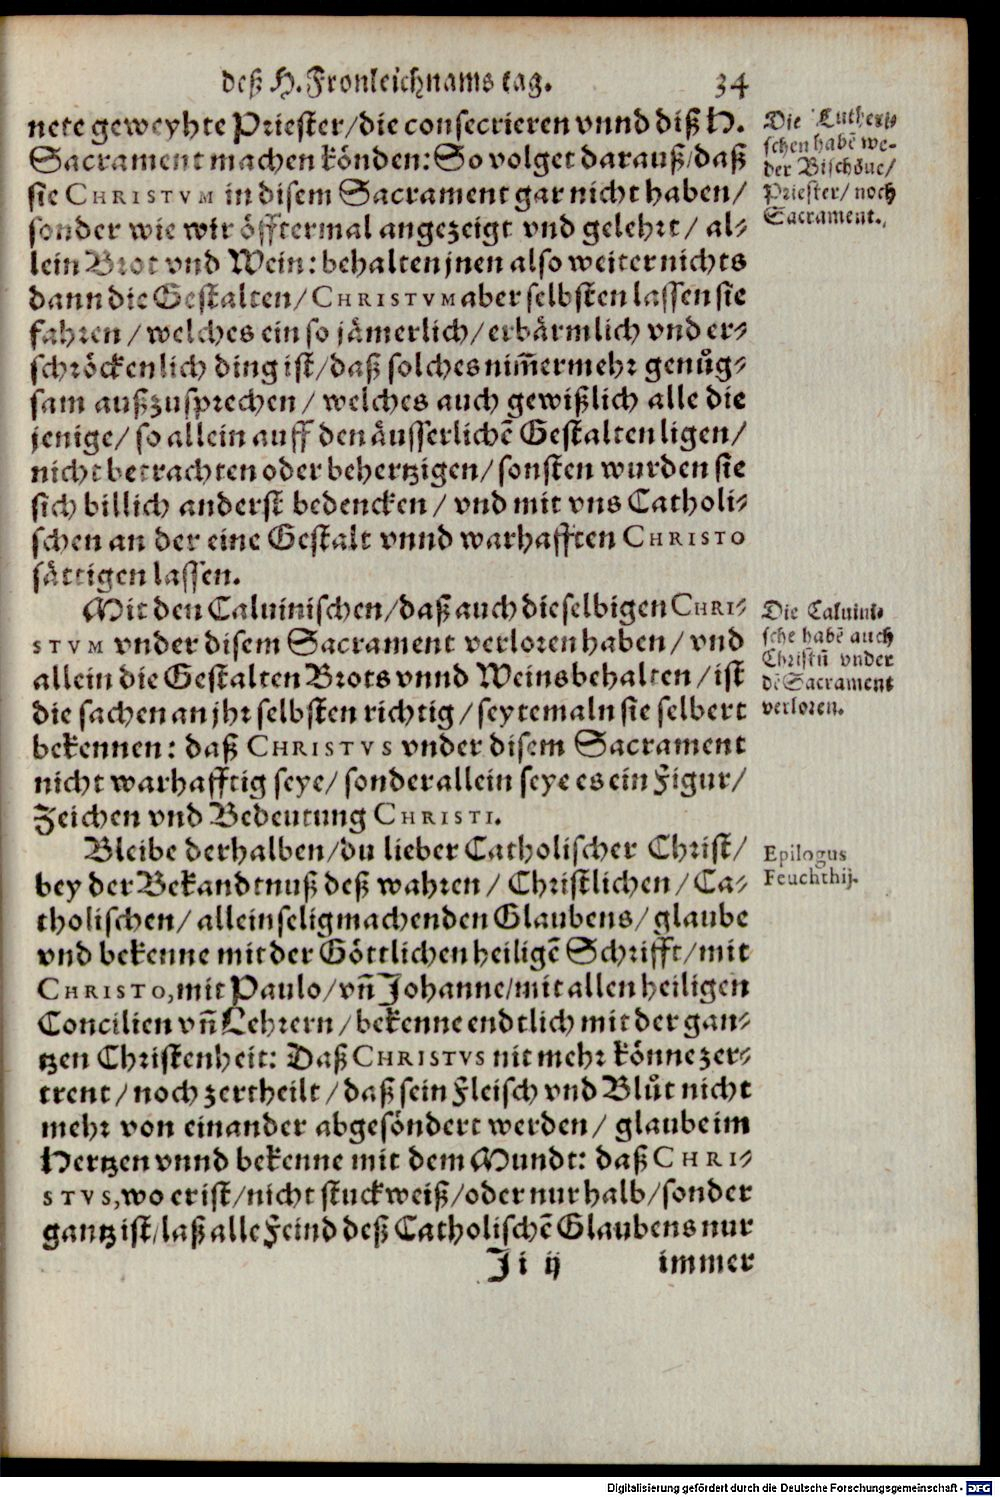 deß H. Fronleichnams tag. 34
nete geweyhte Priester/die consecrieren vnnd diß H.
Sacrament machen könden: So volget darauß/daß
sie CHRISTVM in disem Sacrament gar nicht haben/
sonder wie wir öfftermal angezeigt vnd gelehrt/ al-
lein Brot vnd Wein: behalten jnen also weiter nichts
dann die Gestalten/ CHRISTVM aber selbsten lassen sie
fahren/ welches ein so jämerlich/ erbärmlich vnd er-
schröcklich ding ist/daß solches nim̃ermehr genůg-
sam außzusprechen/ welches auch gewißlich alle die
jenige/ so allein auff den äusserlichẽ Gestalten ligen/
nicht betrachten oder behertzigen/ sonsten wurden sie
sich billich anderst bedencken/ vnd mit vns Catholi-
schen an der eine Gestalt vnnd warhafften CHRISTO
sättigen lassen.
Die Lutheri-
schen habẽ we-
der Bischöue/
Priester/ noch
Sacrament.
Mit den Caluinischen/daß auch dieselbigen CHRI-
STVM vnder disem Sacrament verloren haben/ vnd
allein die Gestalten Brots vnnd Weins behalten/ ist
die sachen an jhr selbsten richtig/ seytemaln sie selbert
bekennen: daß CHRISTVS vnder disem Sacrament
nicht warhafftig seye/ sonder allein seye es ein Figur/
Zeichen vnd Bedeutung CHRISTI.
Die Caluini-
sche habẽ auch
Christũ vnder
dẽ Sacrament
verloren.
Bleibe derhalben/du lieber Catholischer Christ/
bey der Bekandtnuß deß wahren/ Christlichen/ Ca-
tholischen/ allein seligmachenden Glaubens/ glaube
vnd bekenne mit der Göttlichen heiligẽ Schrifft/ mit
CHRISTO, mit Paulo/ vñ Johanne/mit allen heiligen
Concilien vñ Lehrern/ bekenne endtlich mit der gan-
tzen Christenheit: Daß CHRISTVS nit mehr könne zer-
trent/ noch zertheilt/ daß sein Fleisch vnd Blůt nicht
mehr von einander abgesöndert werden/ glaube im
Hertzen vnnd bekenne mit dem Mundt: daß CHRI-
STVS, wo er ist/nicht stuckweiß/oder nur halb/sonder
gantz ist/laß alle Feind deß Catholischẽ Glaubens nur
Epilogus
Feuchthij.
Ji ij immer
Digitalisierung gefördert durch die Deutsche Forschungsgemeinschaft - DFG